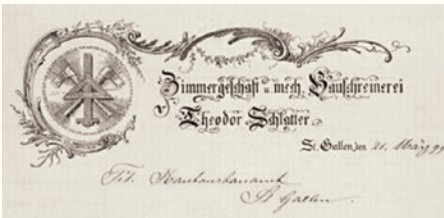 Zimmergeschäft u. mech. Bauschreinerei
Theodor Schlatter
St. Gallen, den 21. März 99
Tit.
St. Gallen.